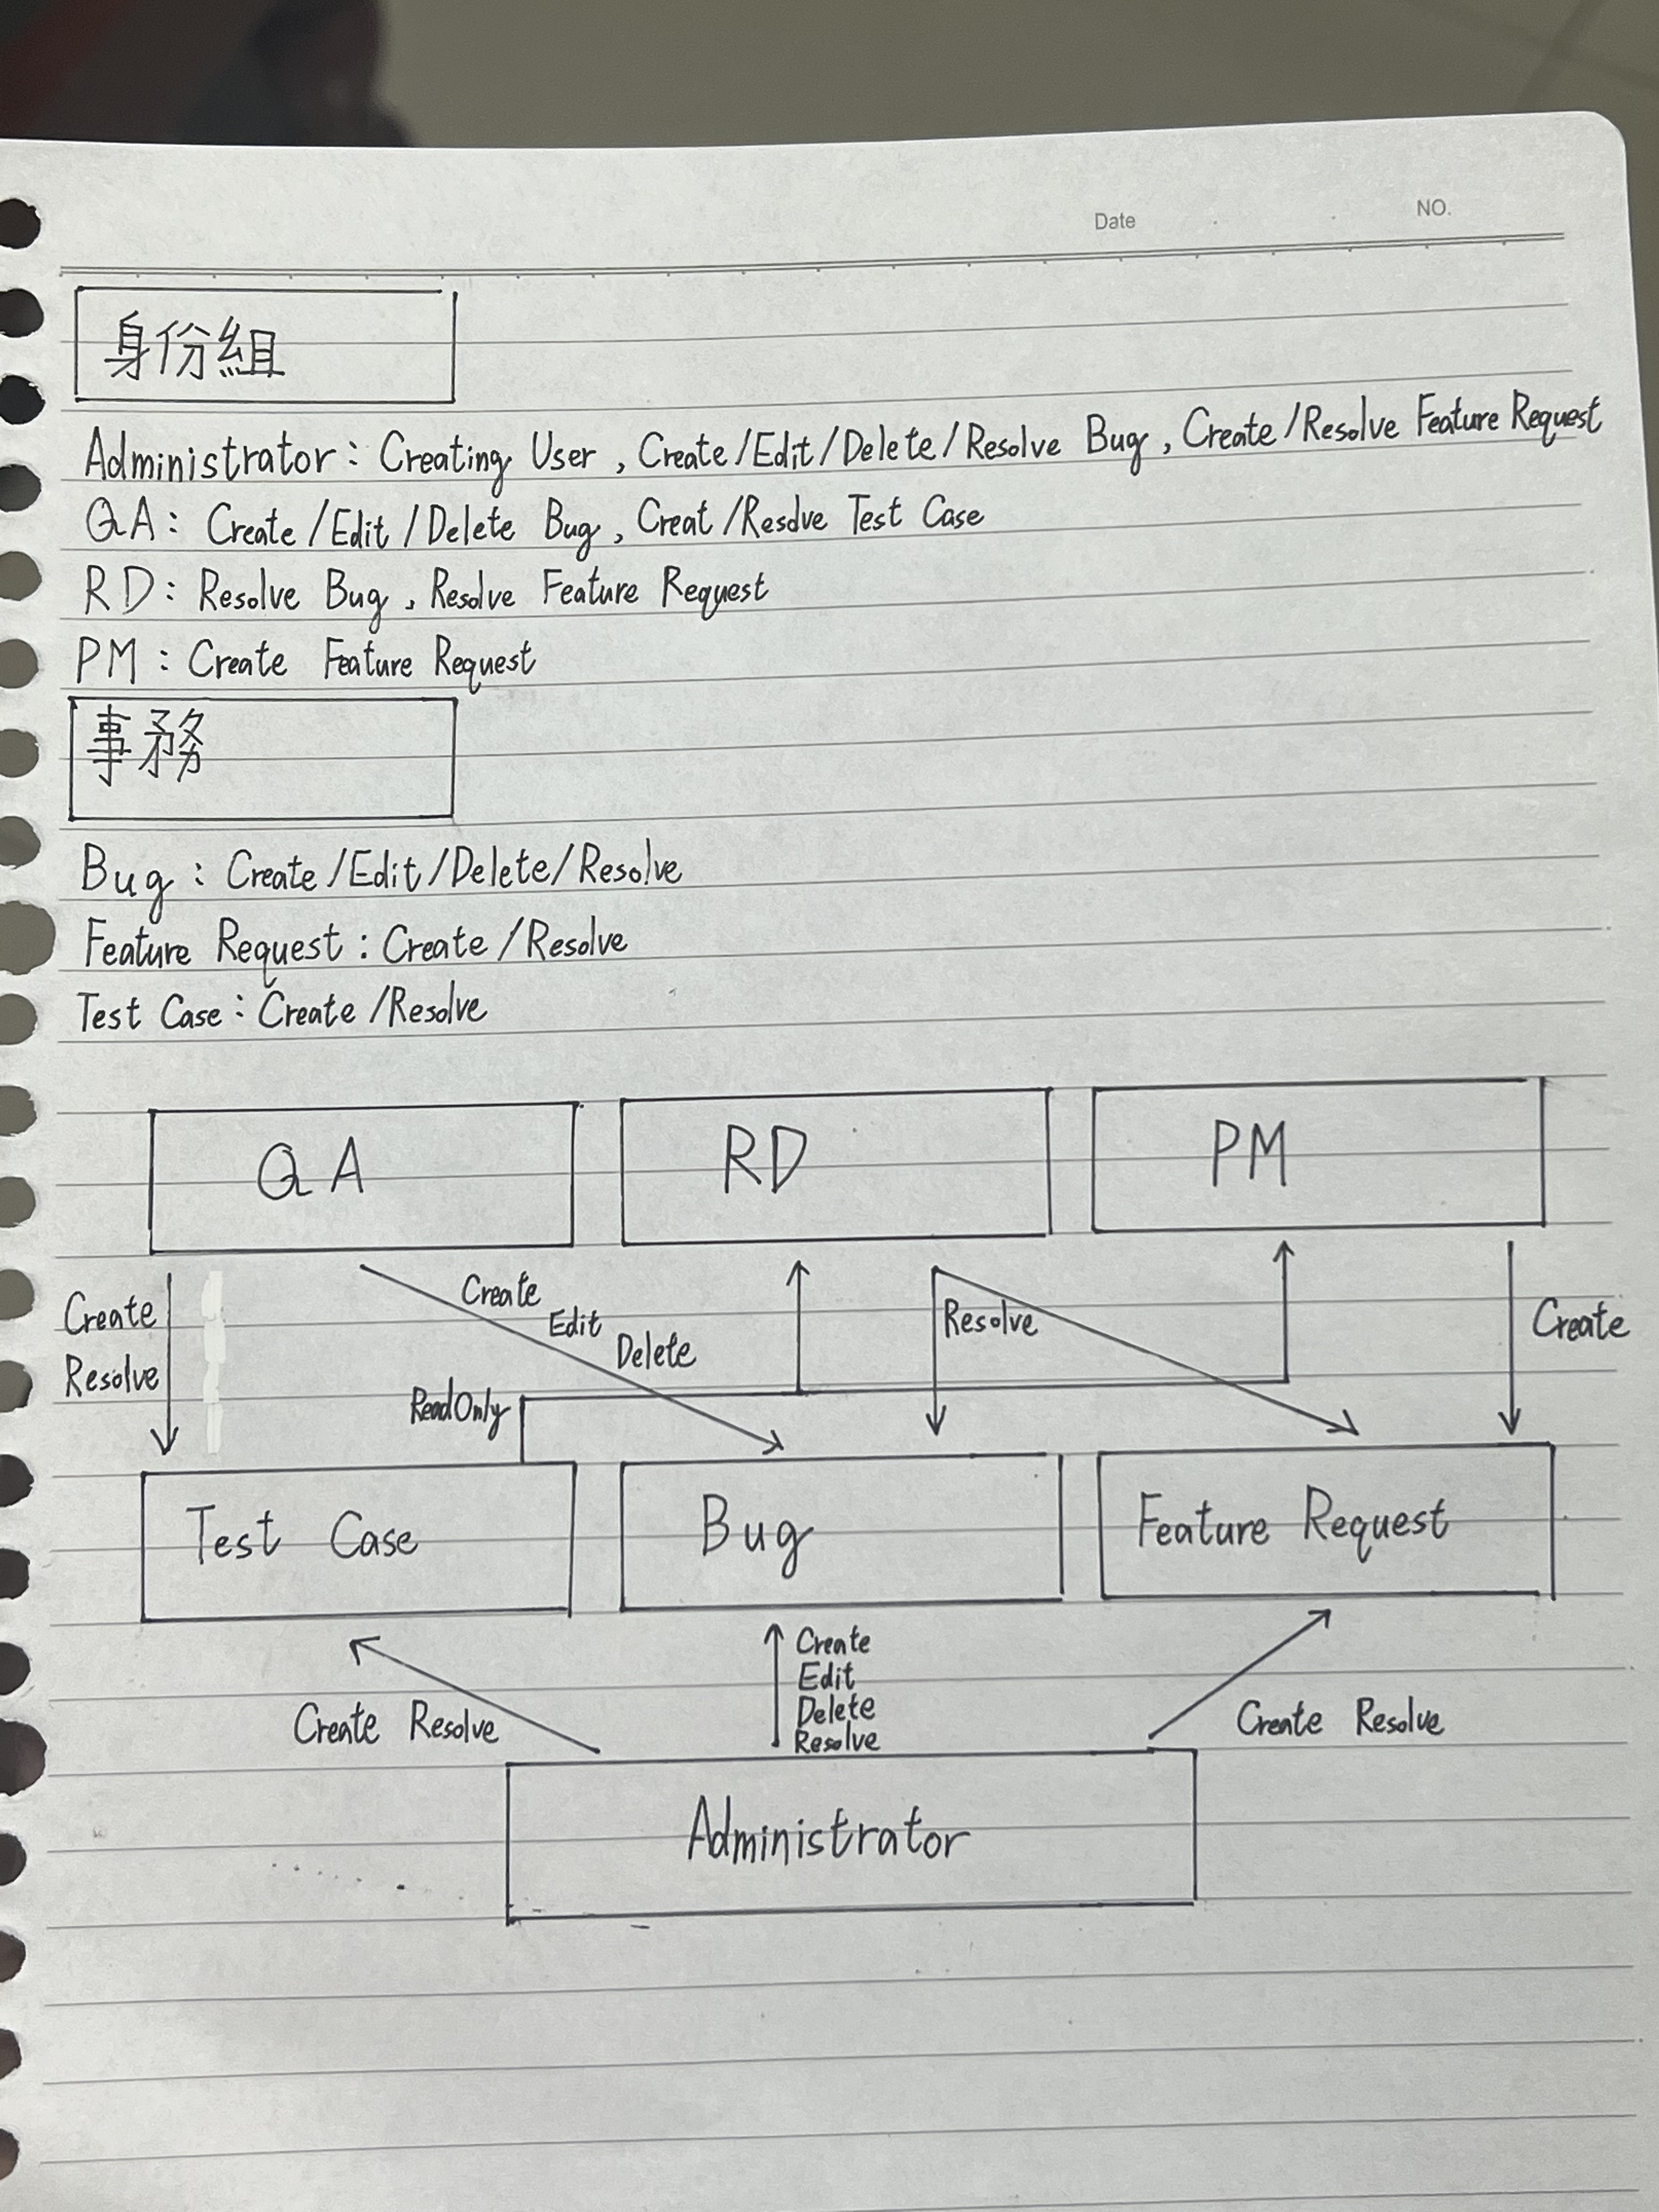 Date NO.
身份組
Administrator: Creating User, Create/Edit/Delete/Resolve Bug, Create/Resolve Feature Request
QA: Create/Edit/Delete Bug, Creat/Resolve Test Case
RD: Resolve Bug, Resolve Feature Request
PM: Create Feature Request
事務
Bug: Create/Edit/Delete/Resolve
Feature Request: Create/Resolve
Test Case: Create/Resolve
QA RD PM
Create
Resolve
Create
Edit
Delete
ReadOnly
Resolve
Create
Test Case Bug Feature Request
Create Resolve
Create
Edit
Delete
Resolve
Create Resolve
Administrator